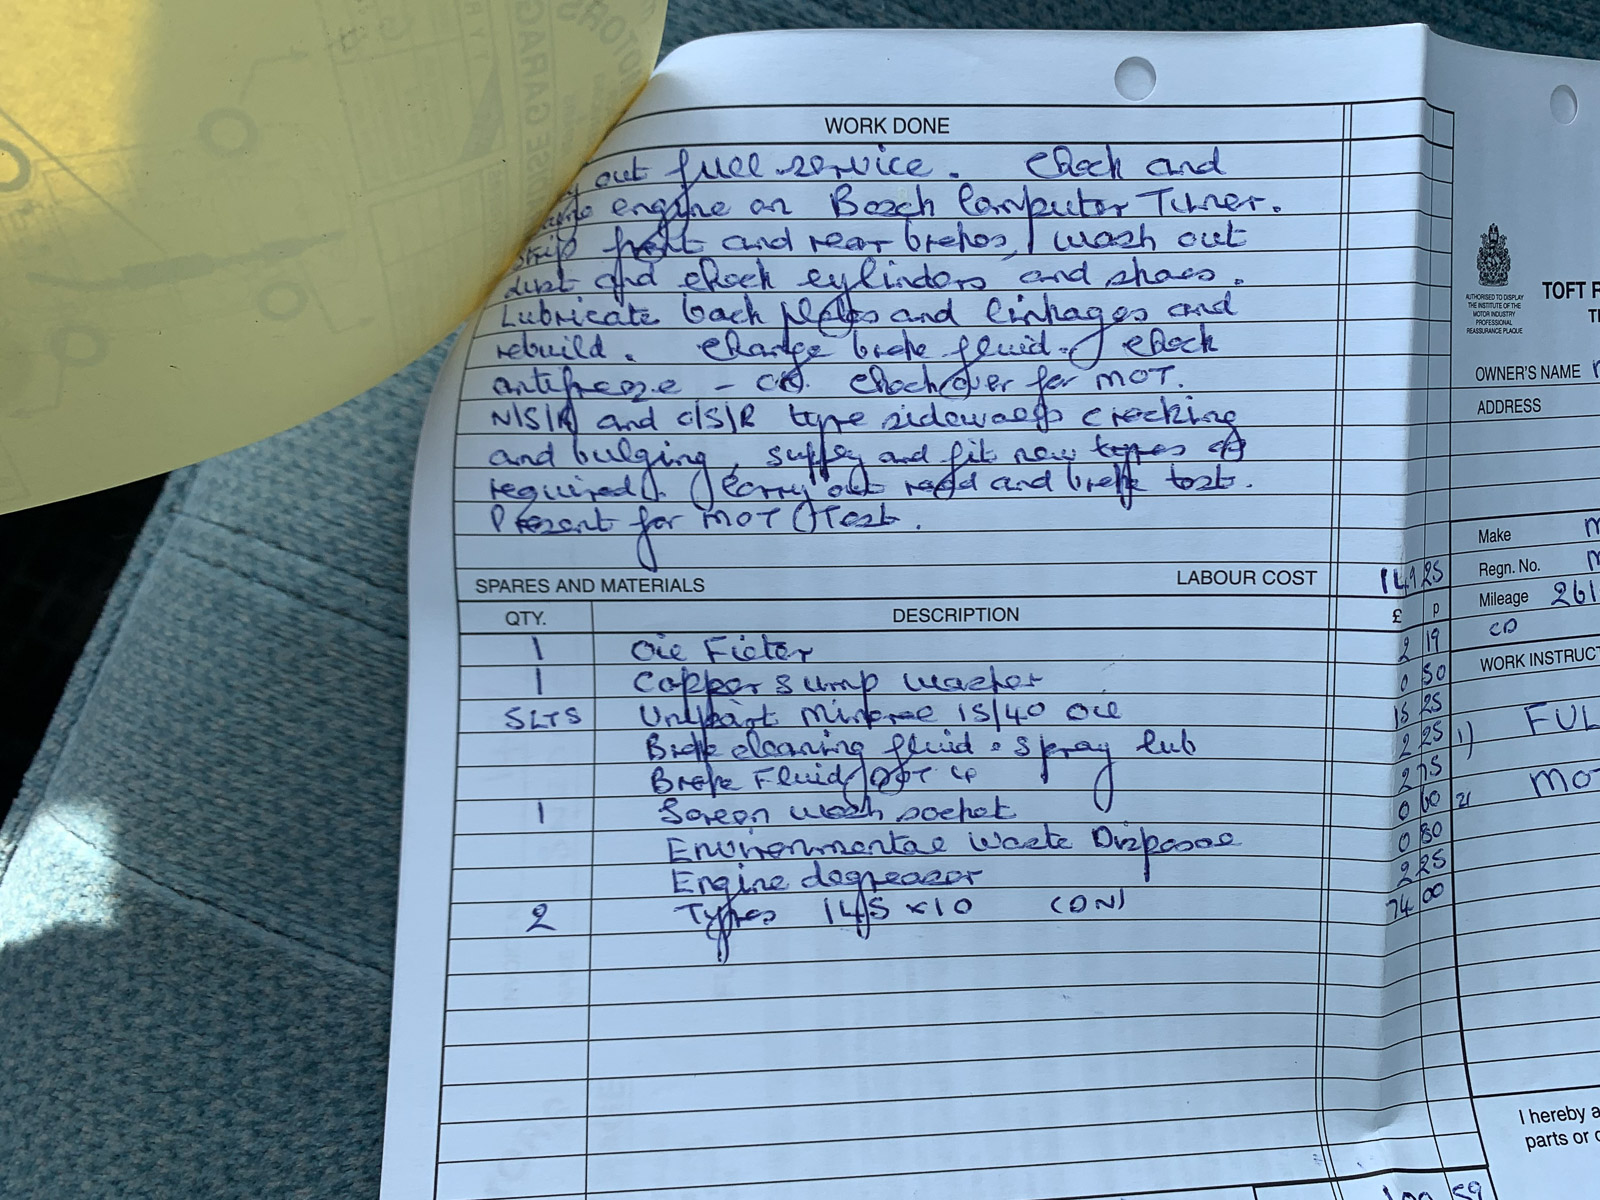 WORK DONE
out full service. Check and
engine on Bosch Computer Tuner.
Strip front and rear brakes, wash out
dust and check cylinders and shoes.
Lubricate back plates and linkages and
rebuild. Change brake fluid. Check
antifreeze - OK. Check over for MOT.
N/S/R and O/S/R tyre sidewalls cracking
and bulging, supply and fit new tyres as
required. Carry out road and brake test.
Present for MOT Test.
SPARES AND MATERIALS LABOUR COST 149 25
QTY. DESCRIPTION £ p
1 Oil Filter 2 19
1 Copper sump washer 0 50
5LTS Unipart Mineral 15/40 Oil 15 25
Brake cleaning fluid + spray lub 2 25
Brake Fluid DOT 4 2 75
1 Screen wash sachet 0 60
Environmental Waste Disposal 0 80
Engine degreaser 2 25
2 Tyres 145 x 10 (DN) 74 00
59
AUTHORISED TO DISPLAY
THE INSTITUTE OF THE
MOTOR INDUSTRY
PROFESSIONAL
REASSURANCE PLAQUE
TOFT
OWNER'S NAME
ADDRESS
Make
Regn. No.
Mileage 261
CD
WORK INSTRUCT
1) FUL
2) MOT
I hereby a
parts or
MOTORS
GARAGE